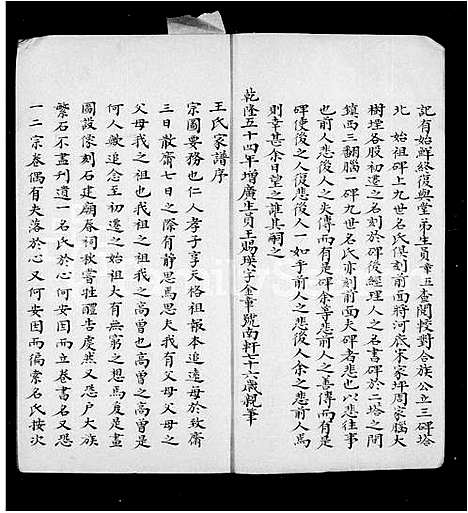 記有始鮮終復與堂弟生員幸五查閱校對合族公立三碑塔
北 始祖碑上九世名氏俱刻前面將河底宋家坪周家腦大
樹堙各股初遷之名刻於碑後經理人之名書碑於二塔之間
鎮西三翻腦一碑九世名氏亦刻前面夫碑者悲也以悲往事
也前人悲後人之失傳而有是碑余等悲前人之善傳而有是
碑使後之人復悲後人一如乎前人之悲後人余之悲前人焉
則幸甚余日望之誰其嗣之
乾隆五十四年增廣生員王賜瑛字金華號南軒七十六歲親筆
王氏家譜序
宗圖要務也仁人孝子享天格祖報本追遠毋於致齋
三日散齋七日之際有靜思焉思夫我有父母父母之
父母我之祖也我祖之祖我之高曾也高曾之高曾是
何人歟追念至初遷之始祖大有無窮之想焉於是畫
圖設像刻石建廟春祠秋嘗牲醴告虔然又恐戶大族
繁石不盡刊遺一名氏於心何安因而立卷書名又恐
一二宗卷偶有失落於心又何安因而徧索名氏按次